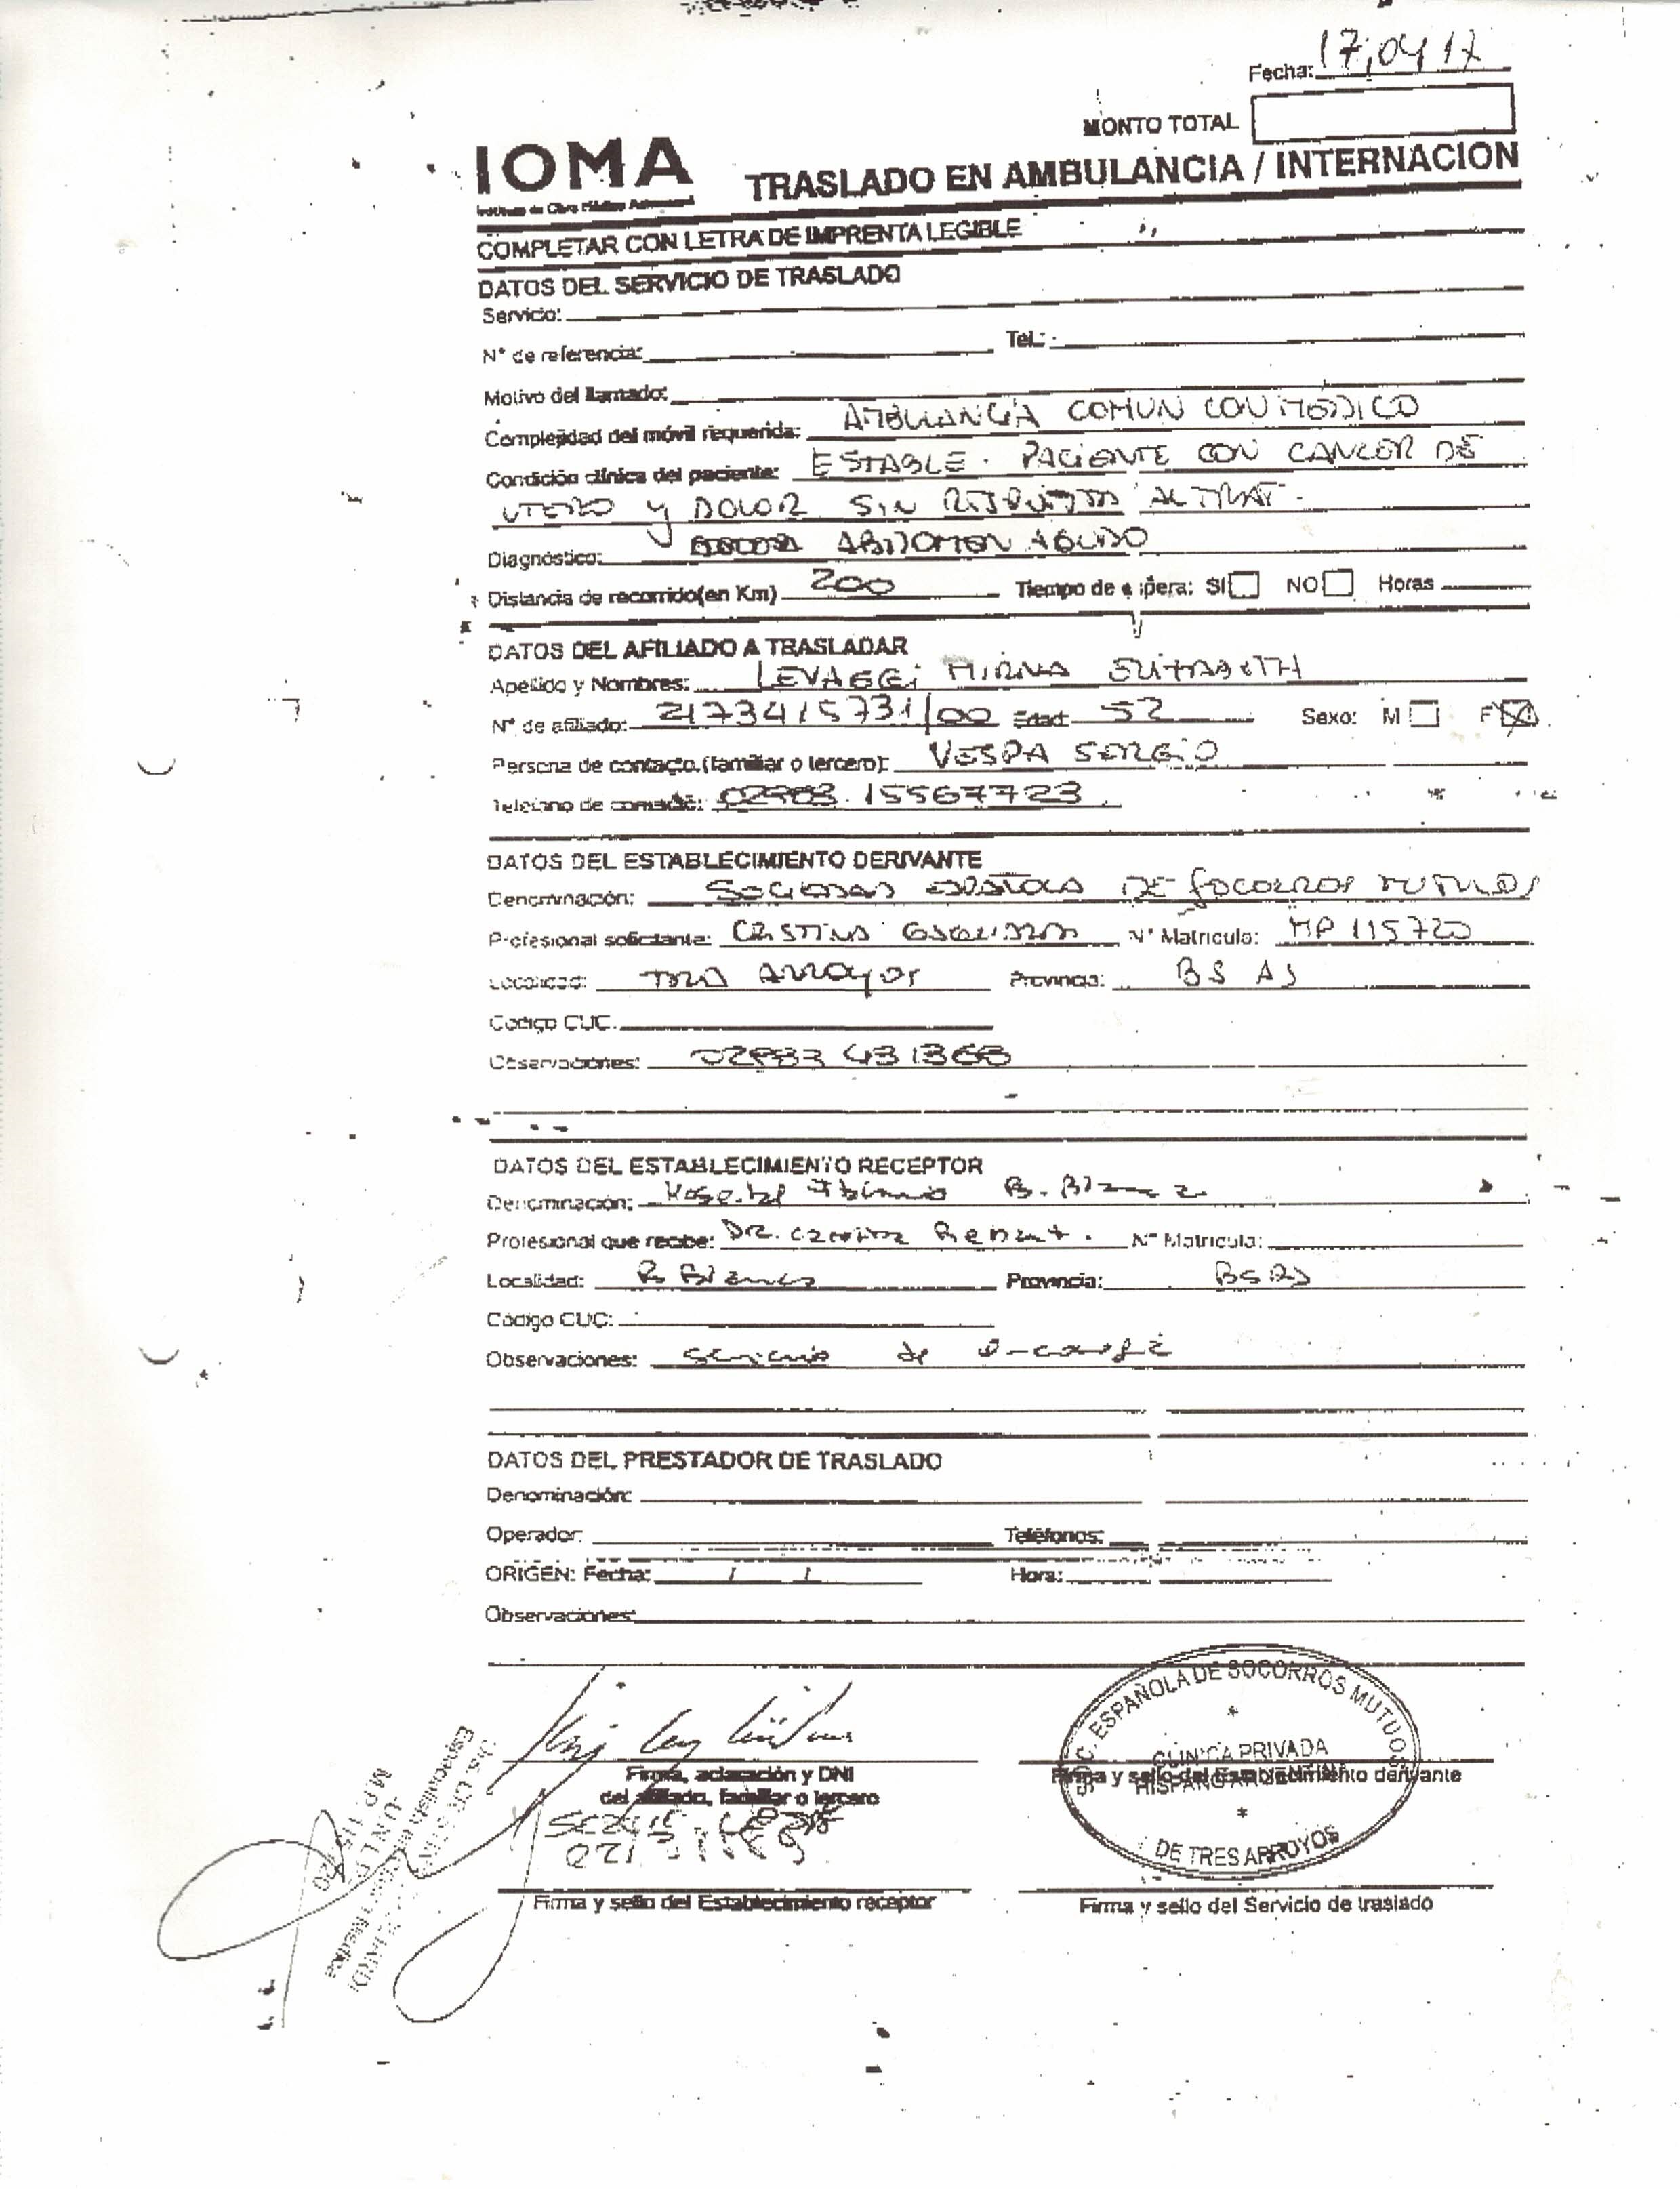 Fecha: 17,04 17
MONTO TOTAL
IOMA
TRASLADO EN AMBULANCIA / INTERNACION
COMPLETAR CON LETRA DE IMPRENTA LEGIBLE
DATOS DEL SERVICIO DE TRASLADO
Servicio:
N° de referencia: Tel.:
Motivo del llamado:
Complejidad del móvil requerida: AMBULANCIA COMUN CON MEDICO
Condición clínica del paciente: ESTABLE. PACIENTE CON CANCER DE
UTERO Y DOLOR SIN RESPUESTA AL TRAT.
Diagnóstico: ABDOMEN AGUDO
Distancia de recorrido(en Km) 200 Tiempo de espera: SI NO Horas
DATOS DEL AFILIADO A TRASLADAR
Apellido y Nombres: LEVAGGI MIRNA ELIZABETH
N° de afiliado: 2173415731/00 Edad: 52 Sexo: M F
Persona de contacto.(familiar o tercero): VESPA SERGIO
Teléfono de contacto: 02983.15567723
DATOS DEL ESTABLECIMIENTO DERIVANTE
Denominación: SOCIEDAD ESPAÑOLA DE SOCORROS MUTUOS
Profesional solicitante: CRISTINA N° Matricula: MP 115720
Localidad: TRES ARROYOS Provincia: BS AS
Codigo CUC.
Observaciones: 02983 431368
DATOS DEL ESTABLECIMIENTO RECEPTOR
Denominación: Hospital B. Blanca
Profesional que recibe: DR. N° Matricula:
Localidad: B Blanca Provincia: BSAS
Código CUC:
Observaciones: Servicio de
DATOS DEL PRESTADOR DE TRASLADO
Denominación:
Operador: Teléfonos:
ORIGEN: Fecha: / / Hora:
Observaciones:
SOC. ESPAÑOLA DE SOCORROS MUTUOS
CLINICA PRIVADA
HISPANO ARGENTINA
DE TRES ARROYOS
Firma, aclaración y DNI
del afiliado, familiar o tercero
Firma y sello del Establecimiento derivante
Firma y sello del Establecimiento receptor
Firma y sello del Servicio de traslado